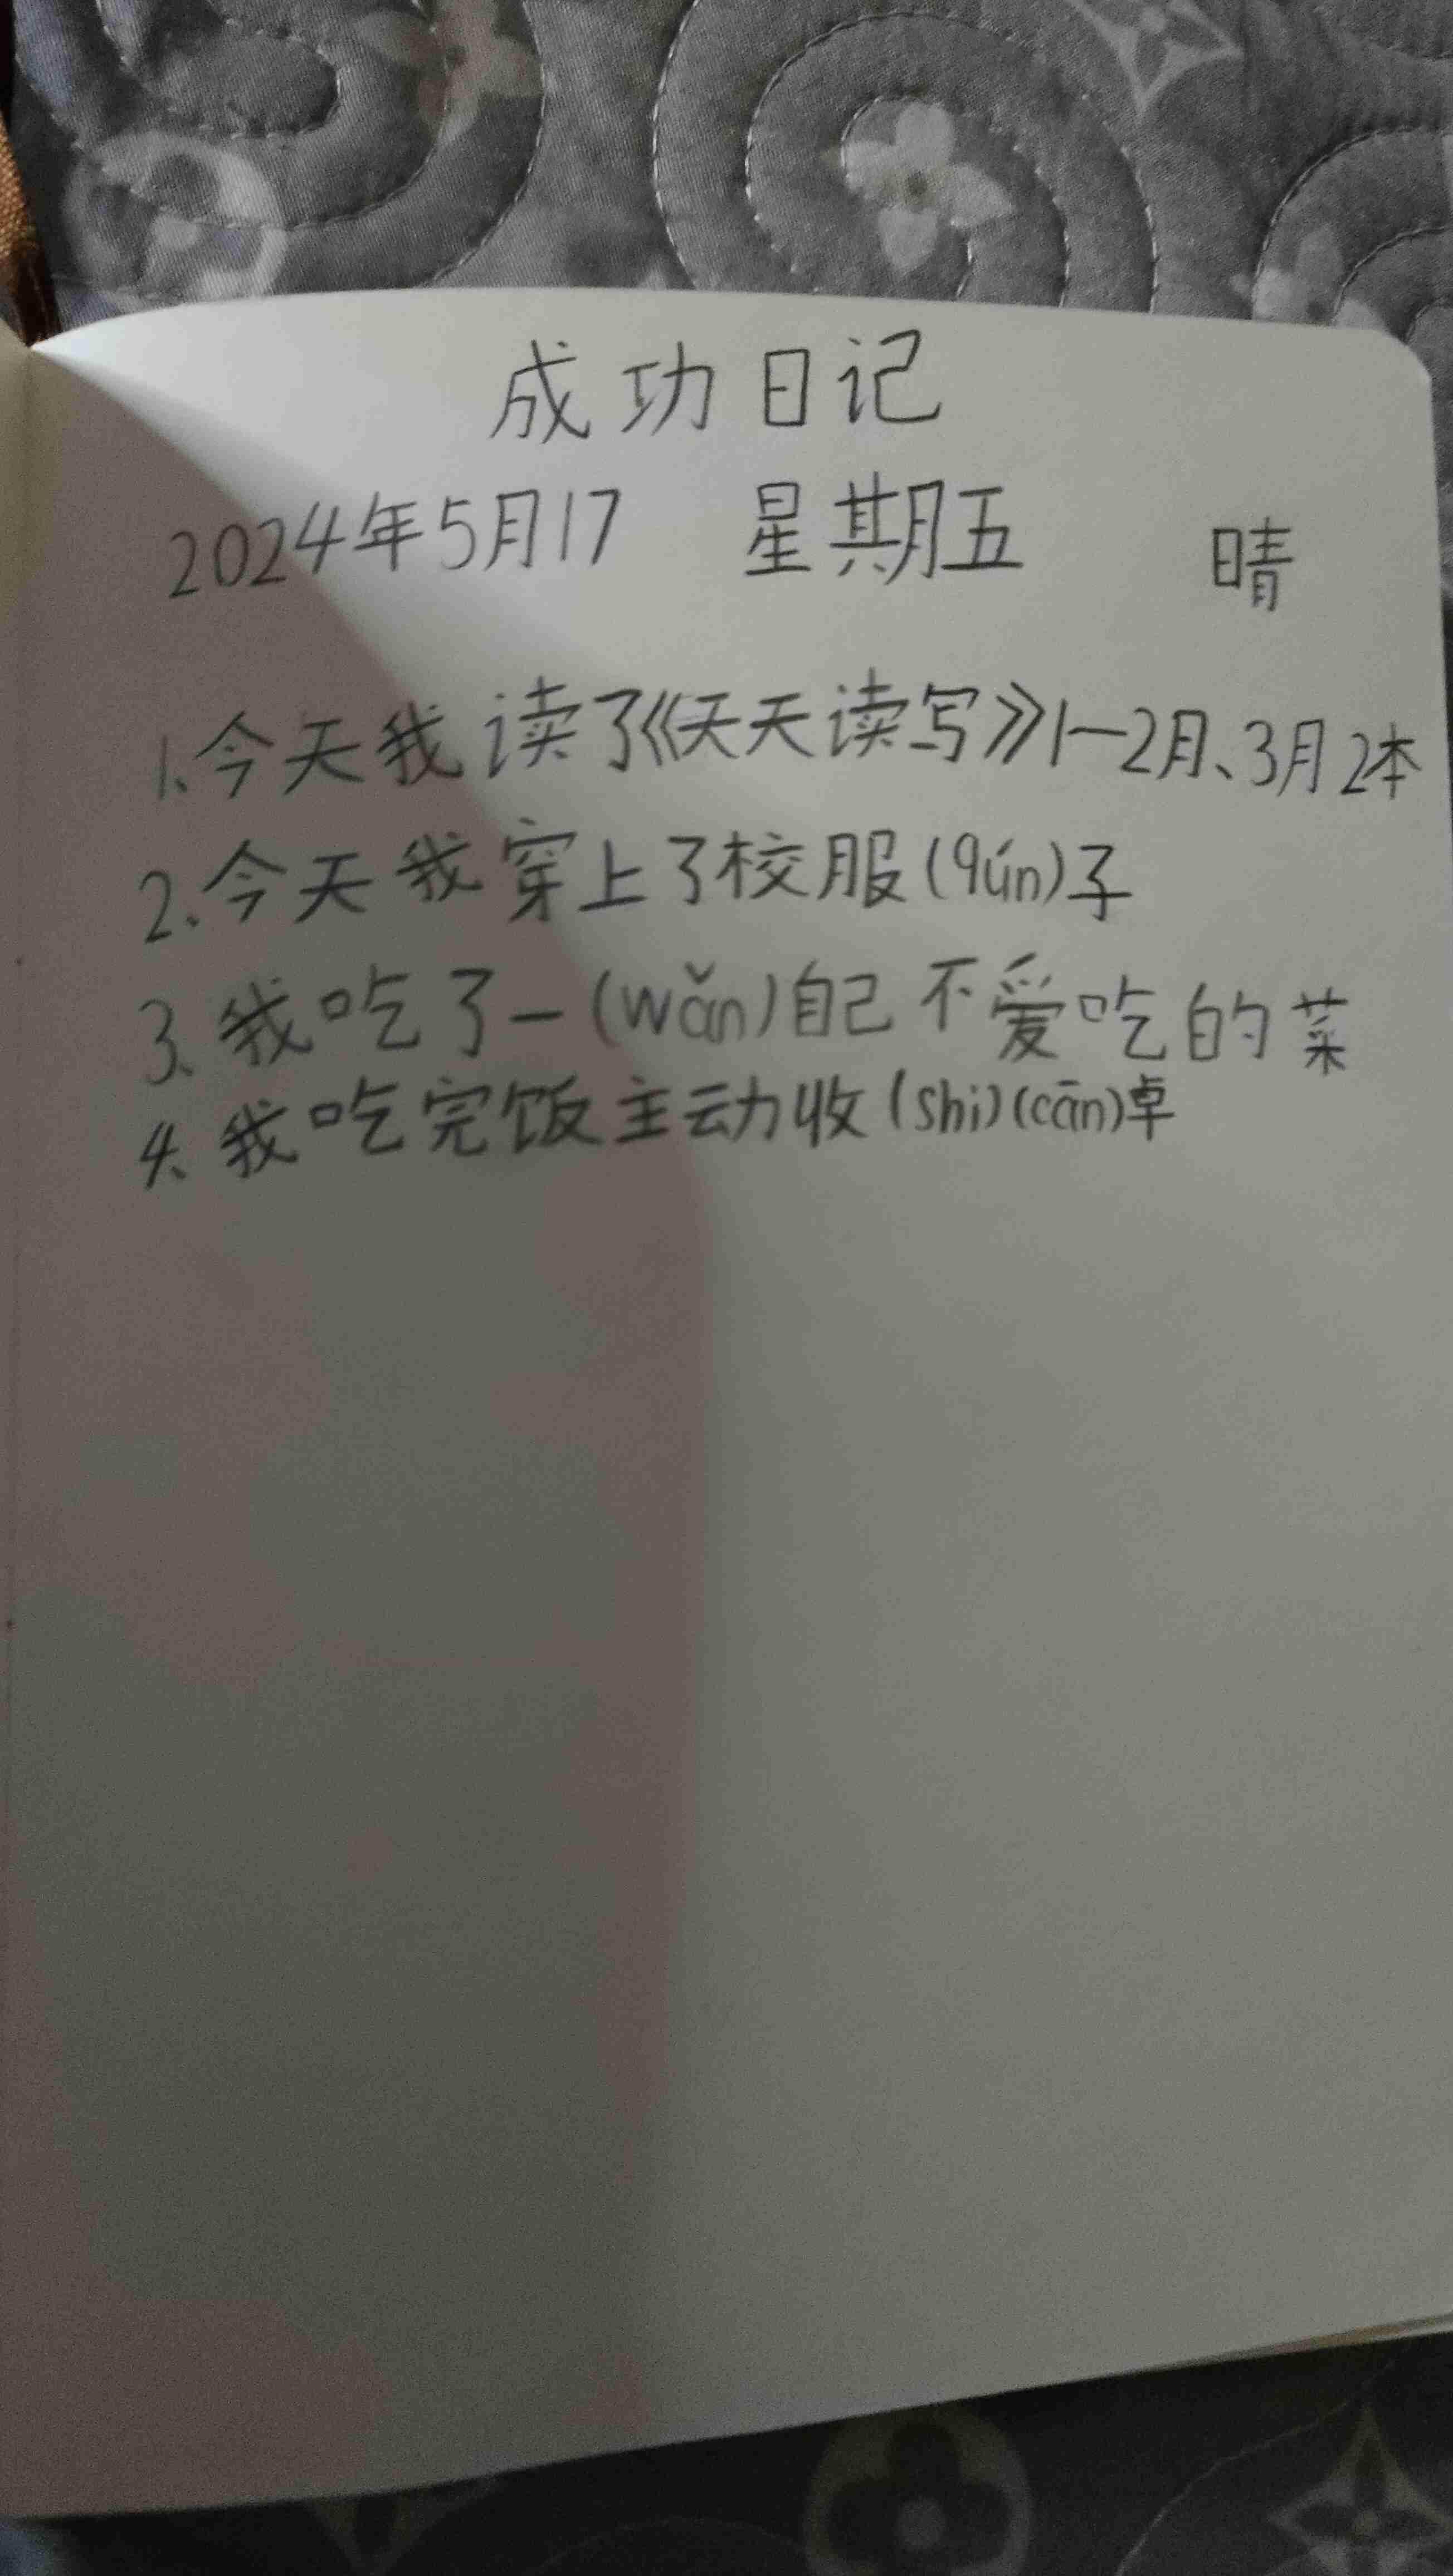 成功日记
2024年5月17 星期五 晴
1、今天我读了《天天读写》1—2月、3月2本
2、今天我穿上了校服(qún)子
3、我吃了一(wǎn)自己不爱吃的菜
4、我吃完饭主动收(shi)(cān)卓